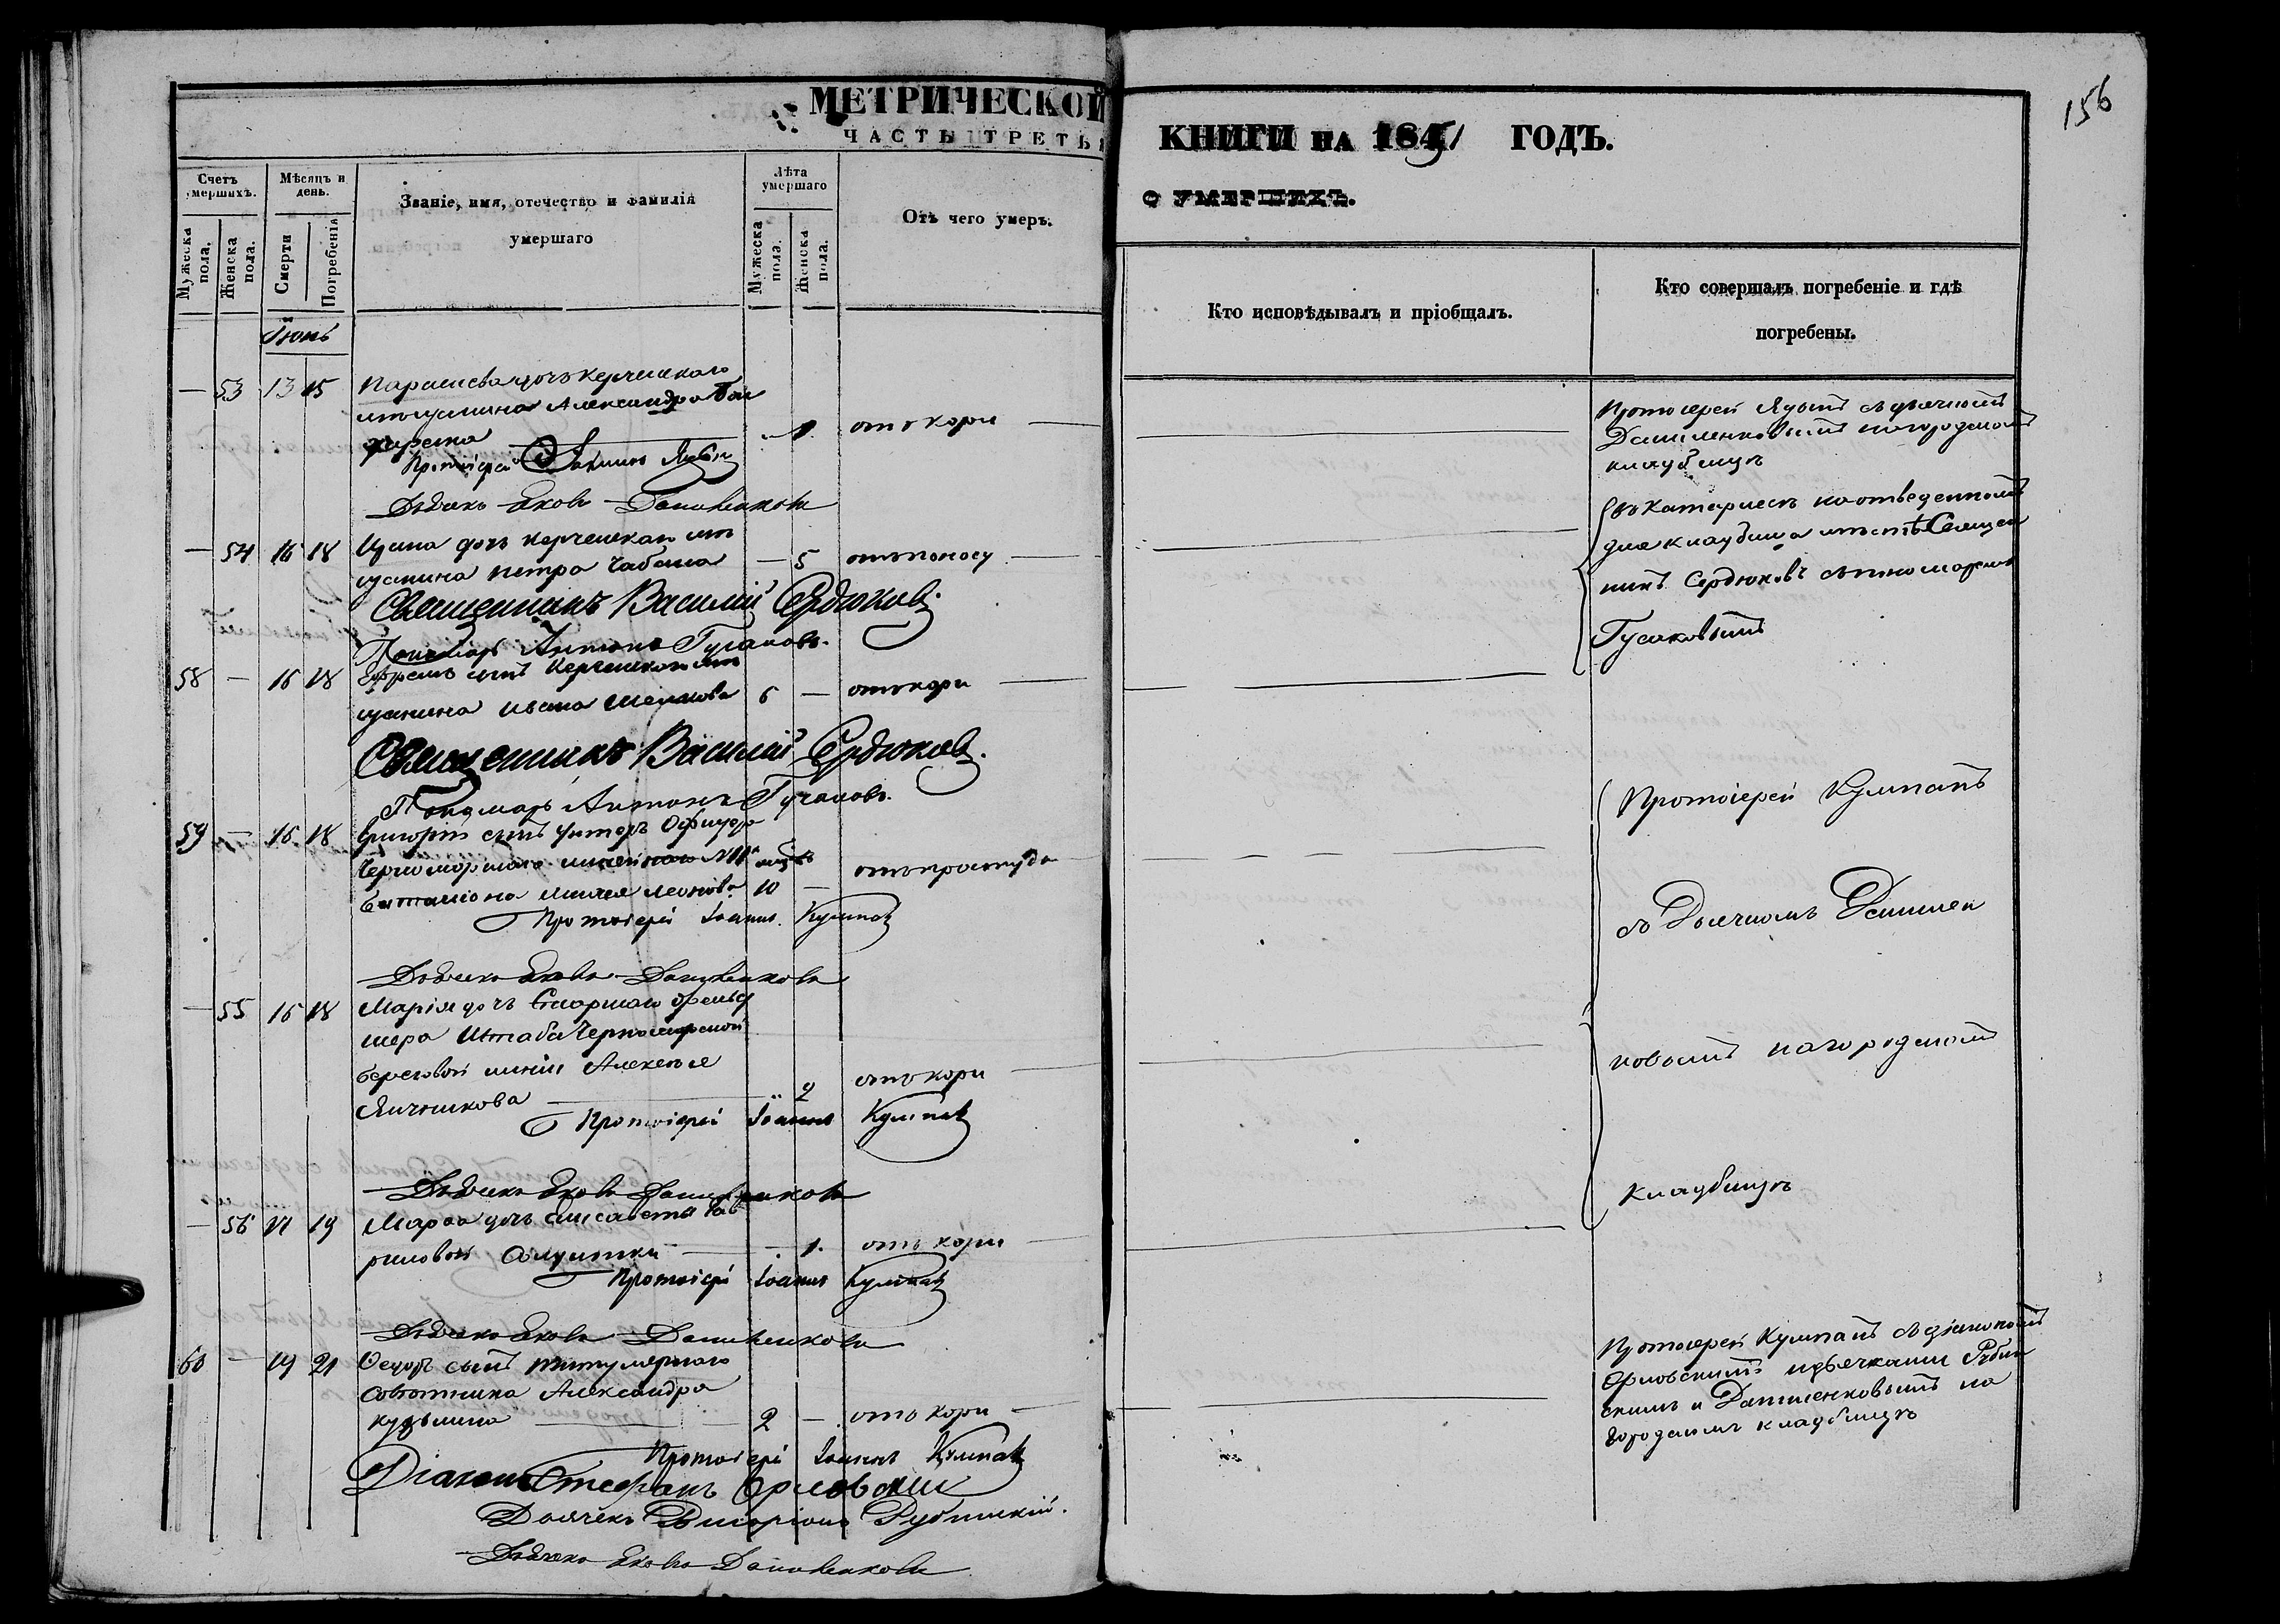 156
МЕТРИЧЕСКОЙ КНИГИ НА 1851 ГОДЪ.
ЧАСТЬ ТРЕТЬЯ О УМЕРШИХЪ.
Счетъ умершихъ.
Мужеска пола.
Женска пола.
Мѣсяцъ и день.
Смерти
Погребенія
Званіе, имя, отечество и фамилія
умершаго
Лѣта умершаго
Мужеска пола.
Женска пола.
Отъ чего умеръ.
Кто исповѣдывалъ и пріобщалъ.
Кто совершалъ погребеніе и гдѣ
погребены.
Іюнь
— 53 13 15 Параскева дочь Керченскаго
мѣщанина Александра
1. отъ кори
Протоіерей
Дьячекъ Яковъ Даниленковъ
Протоіерей съ дьячкомъ
Даниленковымъ на городскомъ
кладбищѣ
— 54 16 18 Ирина дочь керченскаго мѣ
щанина Петра Чабана — 5 отъ поносу
Священникъ Василій Сердюковъ.
Пономарь Антонъ Гусаковъ.
въ Катерлесѣ на отведенномъ
для кладбища мѣстѣ Священ
никъ Сердюковъ съ пономаремъ
Гусаковымъ
58 — 16 18 Ефремъ сынъ Керченскаго мѣ
щанина Ивана 6 — отъ кори
Священникъ Василій Сердюковъ.
Пономарь Антонъ Гусаковъ.
59 — 16 18 Григорій сынъ Унтеръ Офицера
Черноморскаго линейнаго
баталіона Леонова 10 — отъ простуды
Протоіерей Іоаннъ Кумпанъ
Дьячекъ Яковъ Даниленковъ
Протоіерей Кумпанъ
съ Дьячкомъ Данилен
ковымъ на городскомъ
кладбищѣ
— 55 16 18 Марія дочь Старшаго фельд
шера Штаба Черноморской
береговой линіи Алексѣя
Яичникова 2 отъ кори
Протоіерей Іоаннъ Кумпанъ
Дьячекъ Яковъ Даниленковъ
— 56 17 19 Марѳа дочь Елисаветы Гав
риловой Солдатки 1. отъ кори
Протоіерей Іоаннъ Кумпанъ
Дьячекъ Яковъ Даниленковъ
60 — 19 21 Ѳедоръ сынъ титулярнаго
совѣтника Александра
Кузьмина 2 — отъ кори
Протоіерей Іоаннъ Кумпанъ
Діаконъ Стефанъ Орловскій
Дьячекъ Виссаріонъ Рубинскій.
Дьячекъ Яковъ Даниленковъ
Протоіерей Кумпанъ съ діакономъ
Орловскимъ и дьячками Рубин
скимъ и Даниленковымъ на
городскомъ кладбищѣ